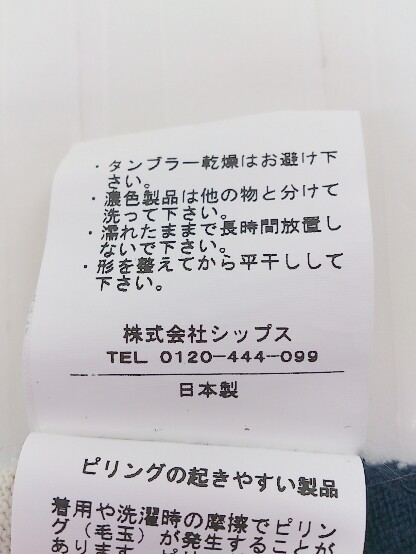 ・タンブラー乾燥はお避け下
さい。
・濃色製品は他の物と分けて
洗って下さい。
・濡れたままで長時間放置し
ないで下さい。
・形を整えてから平干しして
下さい。
株式会社シップス
TEL 0120-444-099
日本製
ピリングの起きやすい製品
着用や洗濯時の摩擦でピリン
グ（毛玉）が発生することが
あります